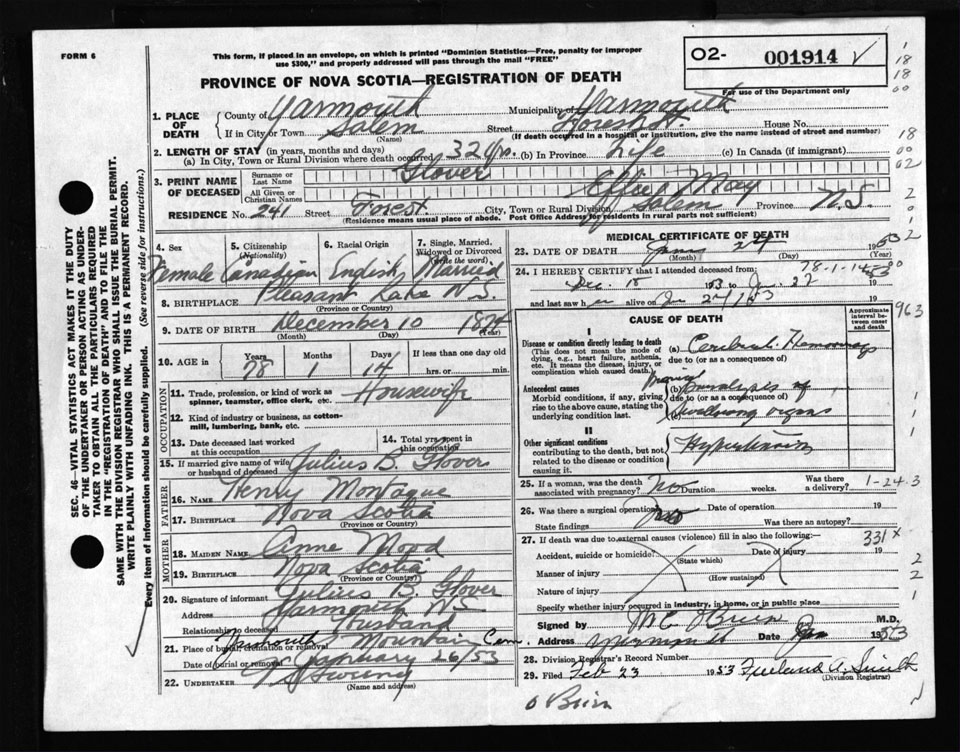 FORM 6
This form, if placed in an envelope, on which is printed "Dominion Statistics—Free, penalty for improper
use $300," and properly addressed will pass through the mail "FREE"
O2- 001914 ✓
For use of the Department only
PROVINCE OF NOVA SCOTIA—REGISTRATION OF DEATH
1. PLACE OF DEATH County of Yarmouth Municipality of Yarmouth
If in City or Town Salem Street Forest St. House No.
(Name) (If death occurred in a hospital or institution, give the name instead of street and number)
2. LENGTH OF STAY (in years, months and days)
(a) In City, Town or Rural Division where death occurred 32 yrs. (b) In Province Life (c) In Canada (if immigrant)
3. PRINT NAME OF DECEASED Surname or Last Name Glover
All Given or Christian Names Effie May
RESIDENCE No. 241 Street Forest City, Town or Rural Division Salem Province N.S.
(Residence means usual place of abode. Post Office Address for residents in rural parts not sufficient)
4. Sex 5. Citizenship (Nationality) 6. Racial Origin 7. Single, Married, Widowed or Divorced (Write the word)
Female Canadian English Married
8. BIRTHPLACE Pleasant Lake N.S.
(Province or Country)
9. DATE OF BIRTH December 10 1874
(Month) (Day) (Year)
10. AGE in Years Months Days If less than one day old
78 1 14 hrs. or min.
OCCUPATION
11. Trade, profession, or kind of work as spinner, teamster, office clerk, etc. Housewife
12. Kind of industry or business, as cotton-mill, lumbering, bank, etc.
13. Date deceased last worked at this occupation
14. Total yrs. spent in this occupation
15. If married give name of wife or husband of deceased Julius B. Glover
FATHER
16. NAME Henry Montague
17. BIRTHPLACE Nova Scotia
(Province or Country)
MOTHER
18. MAIDEN NAME Anne Mood
19. BIRTHPLACE Nova Scotia
(Province or Country)
20. Signature of informant Julius B. Glover
Address Yarmouth N.S.
Relationship to deceased Husband
21. Place of burial, cremation or removal Yarmouth Mountain Cem.
Date of burial or removal January 26/53
22. UNDERTAKER Sweeny
(Name and address)
MEDICAL CERTIFICATE OF DEATH
23. DATE OF DEATH Jany 24 1953
(Month) (Day) (Year)
78-1-14
24. I HEREBY CERTIFY that I attended deceased from:
Dec. 15 to Jan. 22 19
and last saw her alive on Jan 19
CAUSE OF DEATH
Approximate interval between onset and death
I
Disease or condition directly leading to death
(This does not mean the mode of dying, e.g. heart failure, asthenia, etc. It means the disease, injury, or complication which caused death.)
(a) Cerebral Hemorrhage
due to (or as a consequence of)
Antecedent causes
Morbid conditions, if any, giving rise to the above cause, stating the underlying condition last.
(b) Paralysis of
due to (or as a consequence of)
(c) swallowing organs
II
Other significant conditions
contributing to the death, but not related to the disease or condition causing it.
Hypertension
25. If a woman, was the death associated with pregnancy? No Duration weeks. Was there a delivery? 1-24-3
26. Was there a surgical operation? Date of operation 19
State findings Was there an autopsy?
27. If death was due to external causes (violence) fill in also the following:— 331 X
Accident, suicide or homicide? Date of injury 19
(State which)
Manner of injury
(How sustained)
Nature of injury
Specify whether injury occurred in industry, in home, or in public place
Signed by O'Brien M.D.
Address Date Jan 1953
28. Division Registrar's Record Number
29. Filed Feb 23 1953 A. Smith
(Division Registrar)
O'Brien
SEC. 46—VITAL STATISTICS ACT MAKES IT THE DUTY
OF THE UNDERTAKER OR PERSON ACTING AS UNDER-
TAKER TO OBTAIN ALL THE PARTICULARS REQUIRED
IN THE "REGISTRATION OF DEATH" AND TO FILE THE
SAME WITH THE DIVISION REGISTRAR WHO SHALL ISSUE THE BURIAL PERMIT.
WRITE PLAINLY WITH UNFADING INK. THIS IS A PERMANENT RECORD.
Every item of information should be carefully supplied. (See reverse side for instructions.)
1
18
18
00
18
00
02
2
0
2
00
963
1
1
1
2
2
1
1